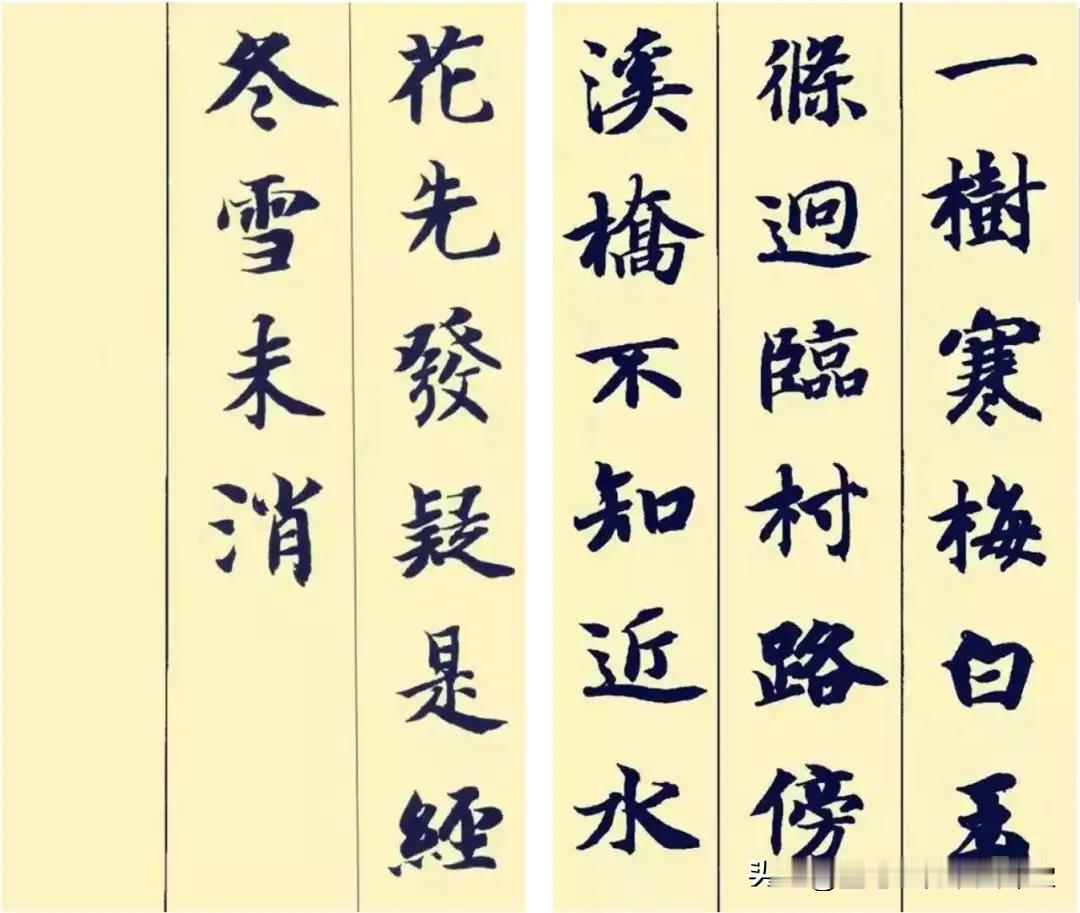 一樹寒梅白玉
條迥臨村路傍
溪橋不知近水
花先發疑是經
冬雪未消
头